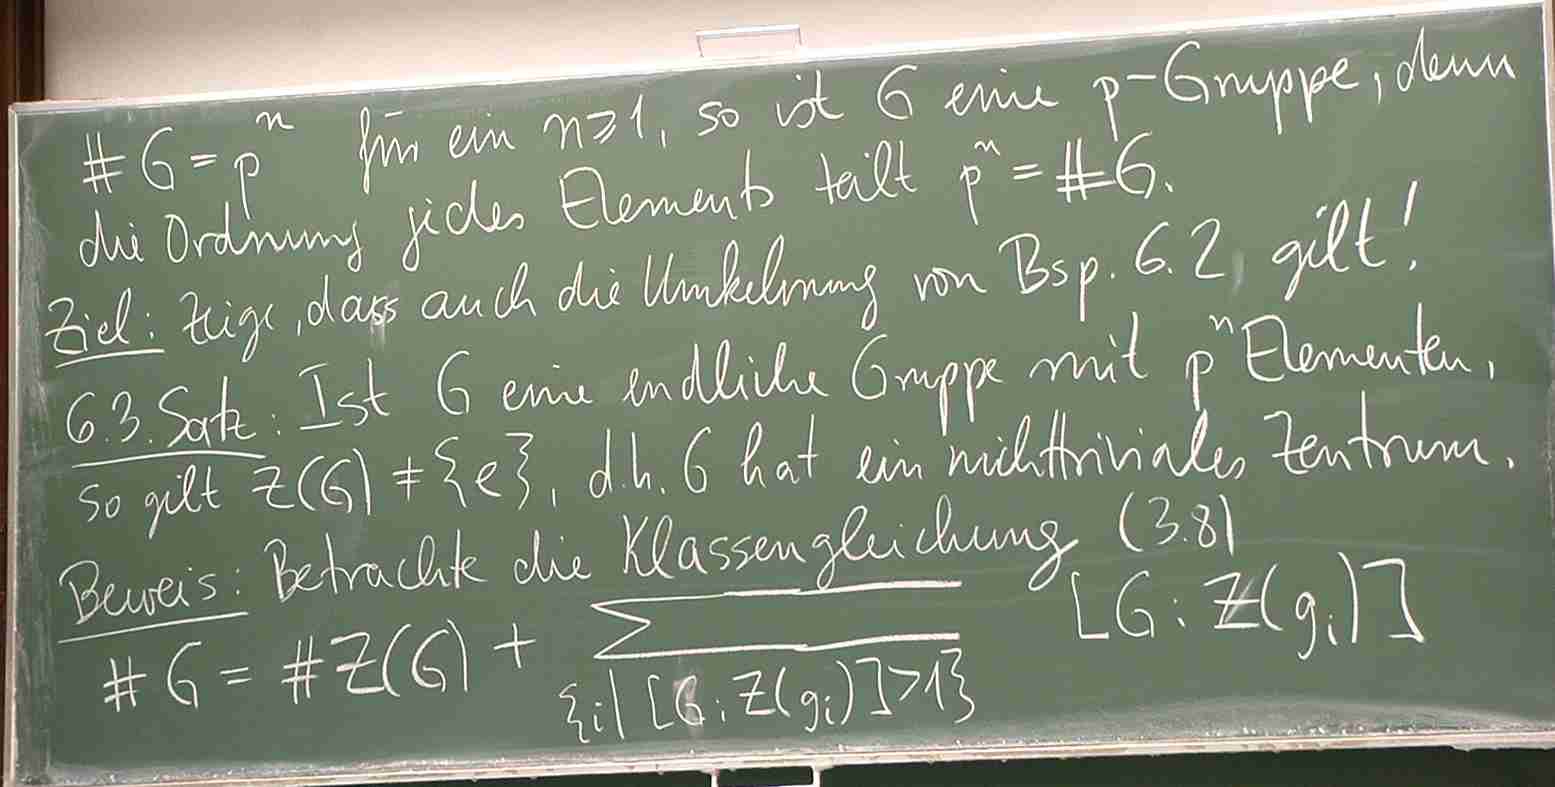 # G = pⁿ für ein n ≥ 1, so ist G eine p-Gruppe, denn
die Ordnung jedes Elements teilt pⁿ = #G.
Ziel: Zeige, dass auch die Umkehrung von Bsp. 6.2 gilt!
6.3. Satz: Ist G eine endliche Gruppe mit pⁿ Elementen,
so gilt Z(G) ≠ {e}, d.h. G hat ein nichttriviales Zentrum.
Beweis: Betrachte die Klassengleichung (3.8)
# G = # Z(G) + ∑ [G : Z(gᵢ)]
{i | [G : Z(gᵢ)] > 1}